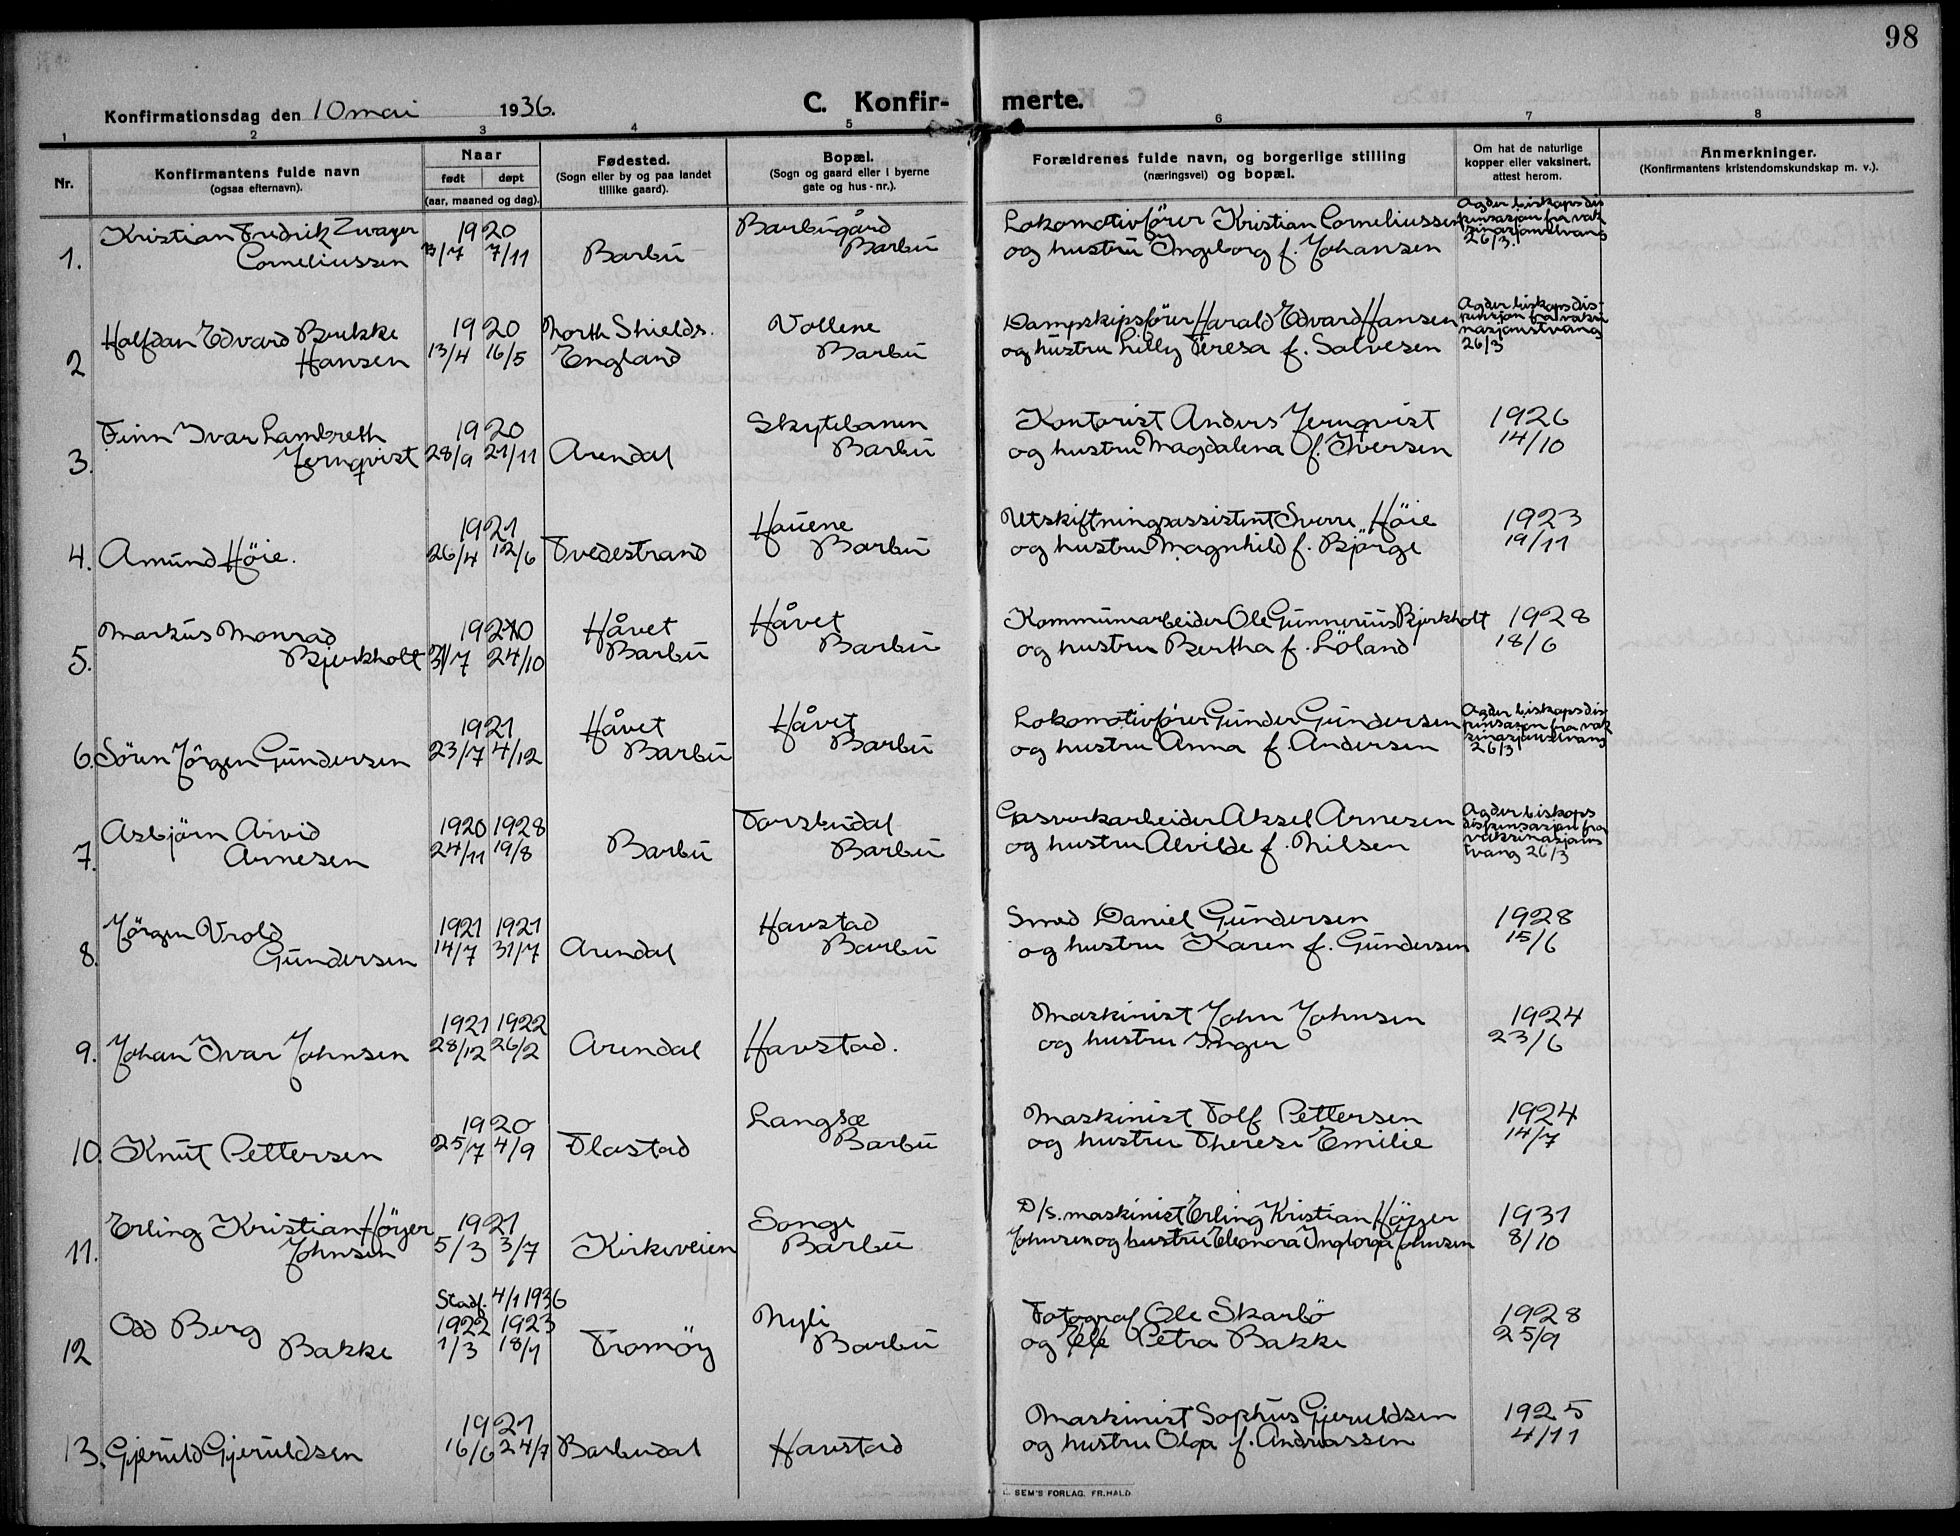 98
Konfirmationsdag den 10 mai 1936.
C. Konfir-
merte.
1 2 3 4 5 6 7 8
Nr.
Konfirmantens fulde navn
(ogsaa efternavn).
Naar
født døpt
(aar, maaned og dag).
Fødested.
(Sogn eller by og paa landet
tillike gaard).
Bopæl.
(Sogn og gaard eller i byerne
gate og hus-nr.).
Forældrenes fulde navn, og borgerlige stilling
(næringsvei) og bopæl.
Om hat de naturlige
kopper eller vaksinert,
attest herom.
Anmerkninger.
(Konfirmantens kristendomskundskap m. v.).
Kristian Fredrik Zwager 1920 Barbugård Lokomotivfører Kristian Corneliussen Agder biskops dis-
pensasjon fra vak
sinasjonstvang
1. Corneliussen 3/7 7/11 Barbu Barbu og hustru Ingeborg f. Johansen 26/3.
Halfdan Edvard Bukke 1920 North Shields. Vollene Dampskipsfører Harald Edvard Hansen Agder biskops dis-
pensasjon fra vaksi
nasjonstvang
2 Hansen 13/4 16/5 England Barbu og hustru Lilly Teresa f. Salvesen 26/3
Finn Ivar Lambreth 1920 Skytebanen Kontorist Anders Jernqvist 1926
3. Jernqvist 28/9 21/11 Arendal Barbu og hustru Magdalena f. Iversen 14/10
1921 Hauene Utskiftningsassistent Sverre Höie 1923
4. Amund Höie. 26/4 12/6 Tvedestrand Barbu og hustru Magnhild f. Bjørge 19/11
Markus Monrad 1920 Håvet Håvet Kommunearbeider Ole Gunnerius Bjerkholt 1928
5. Bjerkholt 31/7 24/10 Barbu Barbu og hustru Bertha f. Löland 18/6
1921 Håvet Håvet Lokomotivfører Gunder Gundersen Agder biskops dis
pensasjon fra vak
sinasjonstvang
6. Sören Jörgen Gundersen 23/7 4/12 Barbu Barbu og hustru Anna f. Andersen 26/3
Asbjörn Arvid 1920 1928 Torsbudal Gasverkarbeider Aksel Arnesen Agder biskops
dispensasjon fra
vaksinasjons
7. Arnesen 24/11 19/8 Barbu Barbu og hustru Alvilde f. Nilsen tvang 26/3
Jörgen Vrold 1921 1921 Havstad Smed Daniel Gundersen 1928
8. Gundersen 14/7 31/7 Arendal Barbu og hustru Karen f. Gundersen 15/6
1921 1922 Maskinist John Johnsen 1924
9. Johan Ivar Johnsen 28/12 26/2 Arendal Havstad. og hustru Inger 23/6
1920 Langsæ Maskinist Tolf Pettersen 1924
10. Knut Pettersen 25/7 4/9 Flostad Barbu og hustru Therese Emilie 14/7
Erling Kristian Höyer 1921 Songe D/s. maskinist Erling Kristian Höyer 1931
11. Johnsen 5/3 3/7 Kirkeveien Barbu Johnsen og hustru Eleonora Ingborga Johnsen 8/10
Stadf. 4/1 1936
Odd Berg 1922 1923 Nyli Fotograf Ole Skarbö 1928
12 Bakke 1/3 18/1 Tromöy Barbu og Petra Bakke 25/9
1921 Maskinist Sophus Gjeruldsen 1925
13. Gjeruld Gjeruldsen 16/6 24/7 Barbudal Havstad og hustru Olga f. Andreassen 4/11
SEM'S FORLAG. FR.HALD.